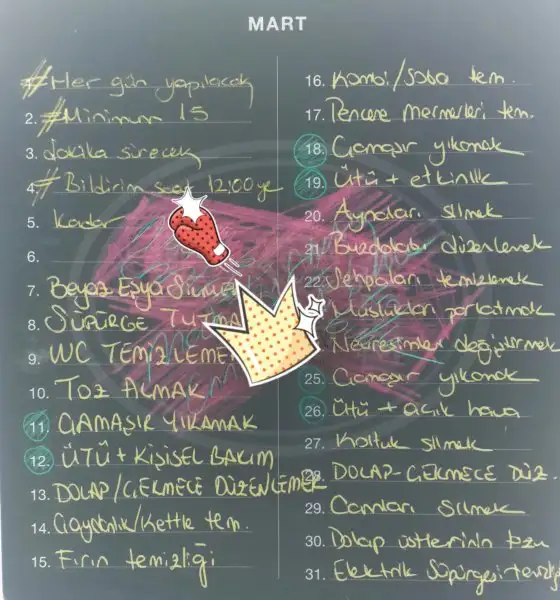 MART
1. #Her gün yapılacak
2. #Minimum 15
3. dakika sürecek
4. # Bildirim saat 12:00 ye
5. kadar
6.
7. Beyaz Eşya Silme
8. SÜPÜRGE TUTMA
9. WC TEMİZLEME
10. TOZ ALMAK
11. ÇAMAŞIR YIKAMAK
12. ÜTÜ + KİŞİSEL BAKIM
13. DOLAP/ÇEKMECE DÜZENLEMEK
14. Çaydanlık/Kettle tem.
15. Fırın temizliği
16. Kombi/Soba tem.
17. Pencere mermerleri tem.
18. Çamaşır yıkamak
19. Ütü + etkinlik
20. Aynaları silmek
21. Buzdolabı düzenlemek
22. Sehpaları temizlemek
Muslukları parlatmak
Nevresimler değiştirmek
25. Çamaşır yıkamak
26. Ütü + açık hava
27. Koltuk silmek
28. DOLAP-ÇEKMECE DÜZ.
29. Camları Silmek
30. Dolap üstlerinin tozu
31. Elektrik Süpürgesi temizliği